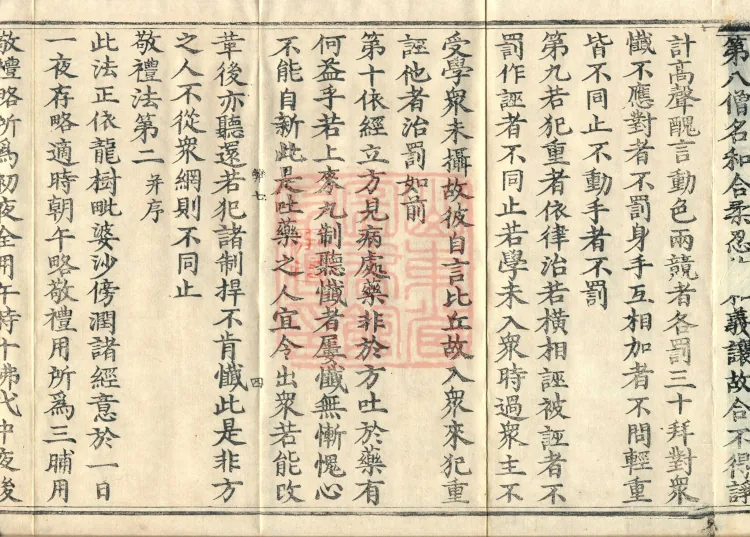 第八僧名和合柔忍義讓故合不得諍
計高聲醜言動色兩競者各罰三十拜對衆
懺不應對者不罰身手互相加者不問輕重
皆不同止不動手者不罰
第九若犯重者依律治若橫相誣被誣者不
罰作誣者不同止若學未入衆時過衆主不
受學衆未攝故彼自言比丘故入衆來犯重
誣他者治罰如前
第十依經立方見病處藥非於方吐於藥有
何益乎若上來九制聽懺者屢懺無慚愧心
不能自新此是吐藥之人宜令出衆若能改
四
革後亦聽還若犯諸制捍不肯懺此是非方
之人不從衆網則不同止
敬禮法第二 并序
此法正依龍樹毗婆沙傍潤諸經意於一日
一夜存略適時朝午略敬禮用所爲三晡用
敬禮略所爲初夜全用午時十佛代中夜後